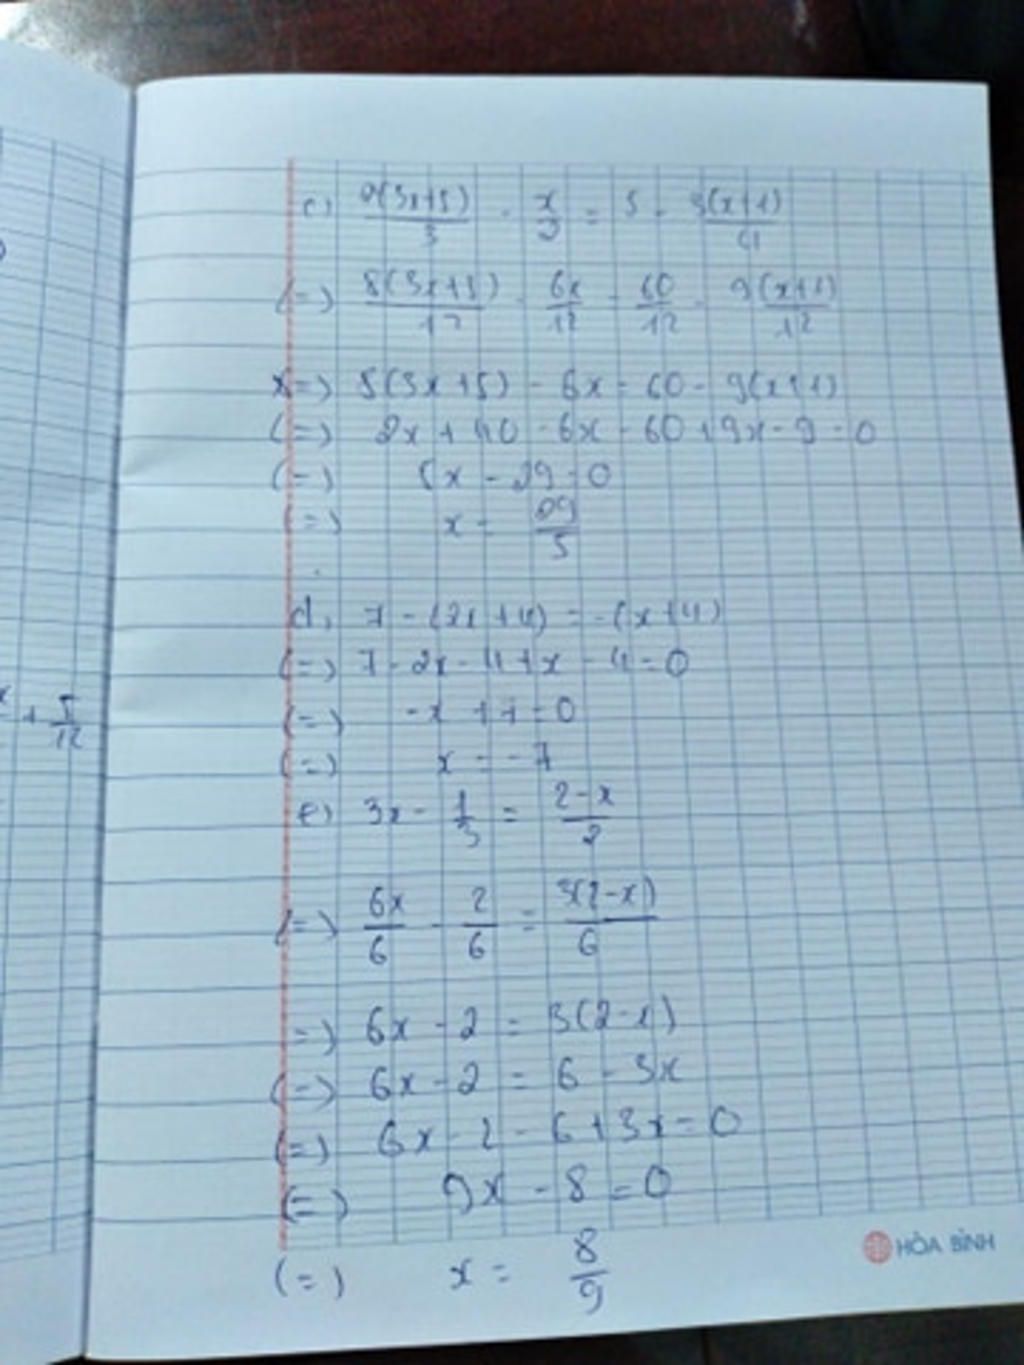 c) 2(3x+5)/3 - x/2 = 5 - 3(x+1)/4
(=) 8(3x+5)/12 - 6x/12 = 60/12 - 9(x+1)/12
=) 8(3x+5) - 6x = 60 - 9(x+1)
(=) 2x + 40 - 6x - 60 + 9x - 9 = 0
(=) 5x - 29 = 0
(=) x = 29/5
d, 7 - (2x+4) = -(x+4)
(=) 7 - 2x - 4 + x - 4 = 0
(=) -x + 7 = 0
(=) x = -7
x + 5/12
e) 3x - 1/3 = 2-x/2
(=) 6x/6 - 2/6 = 3(2-x)/6
=) 6x - 2 = 3(2-x)
(=) 6x - 2 = 6 - 3x
(=) 6x - 2 - 6 + 3x = 0
(=) 9x - 8 = 0
HÒA BÌNH
(=) x = 8/9